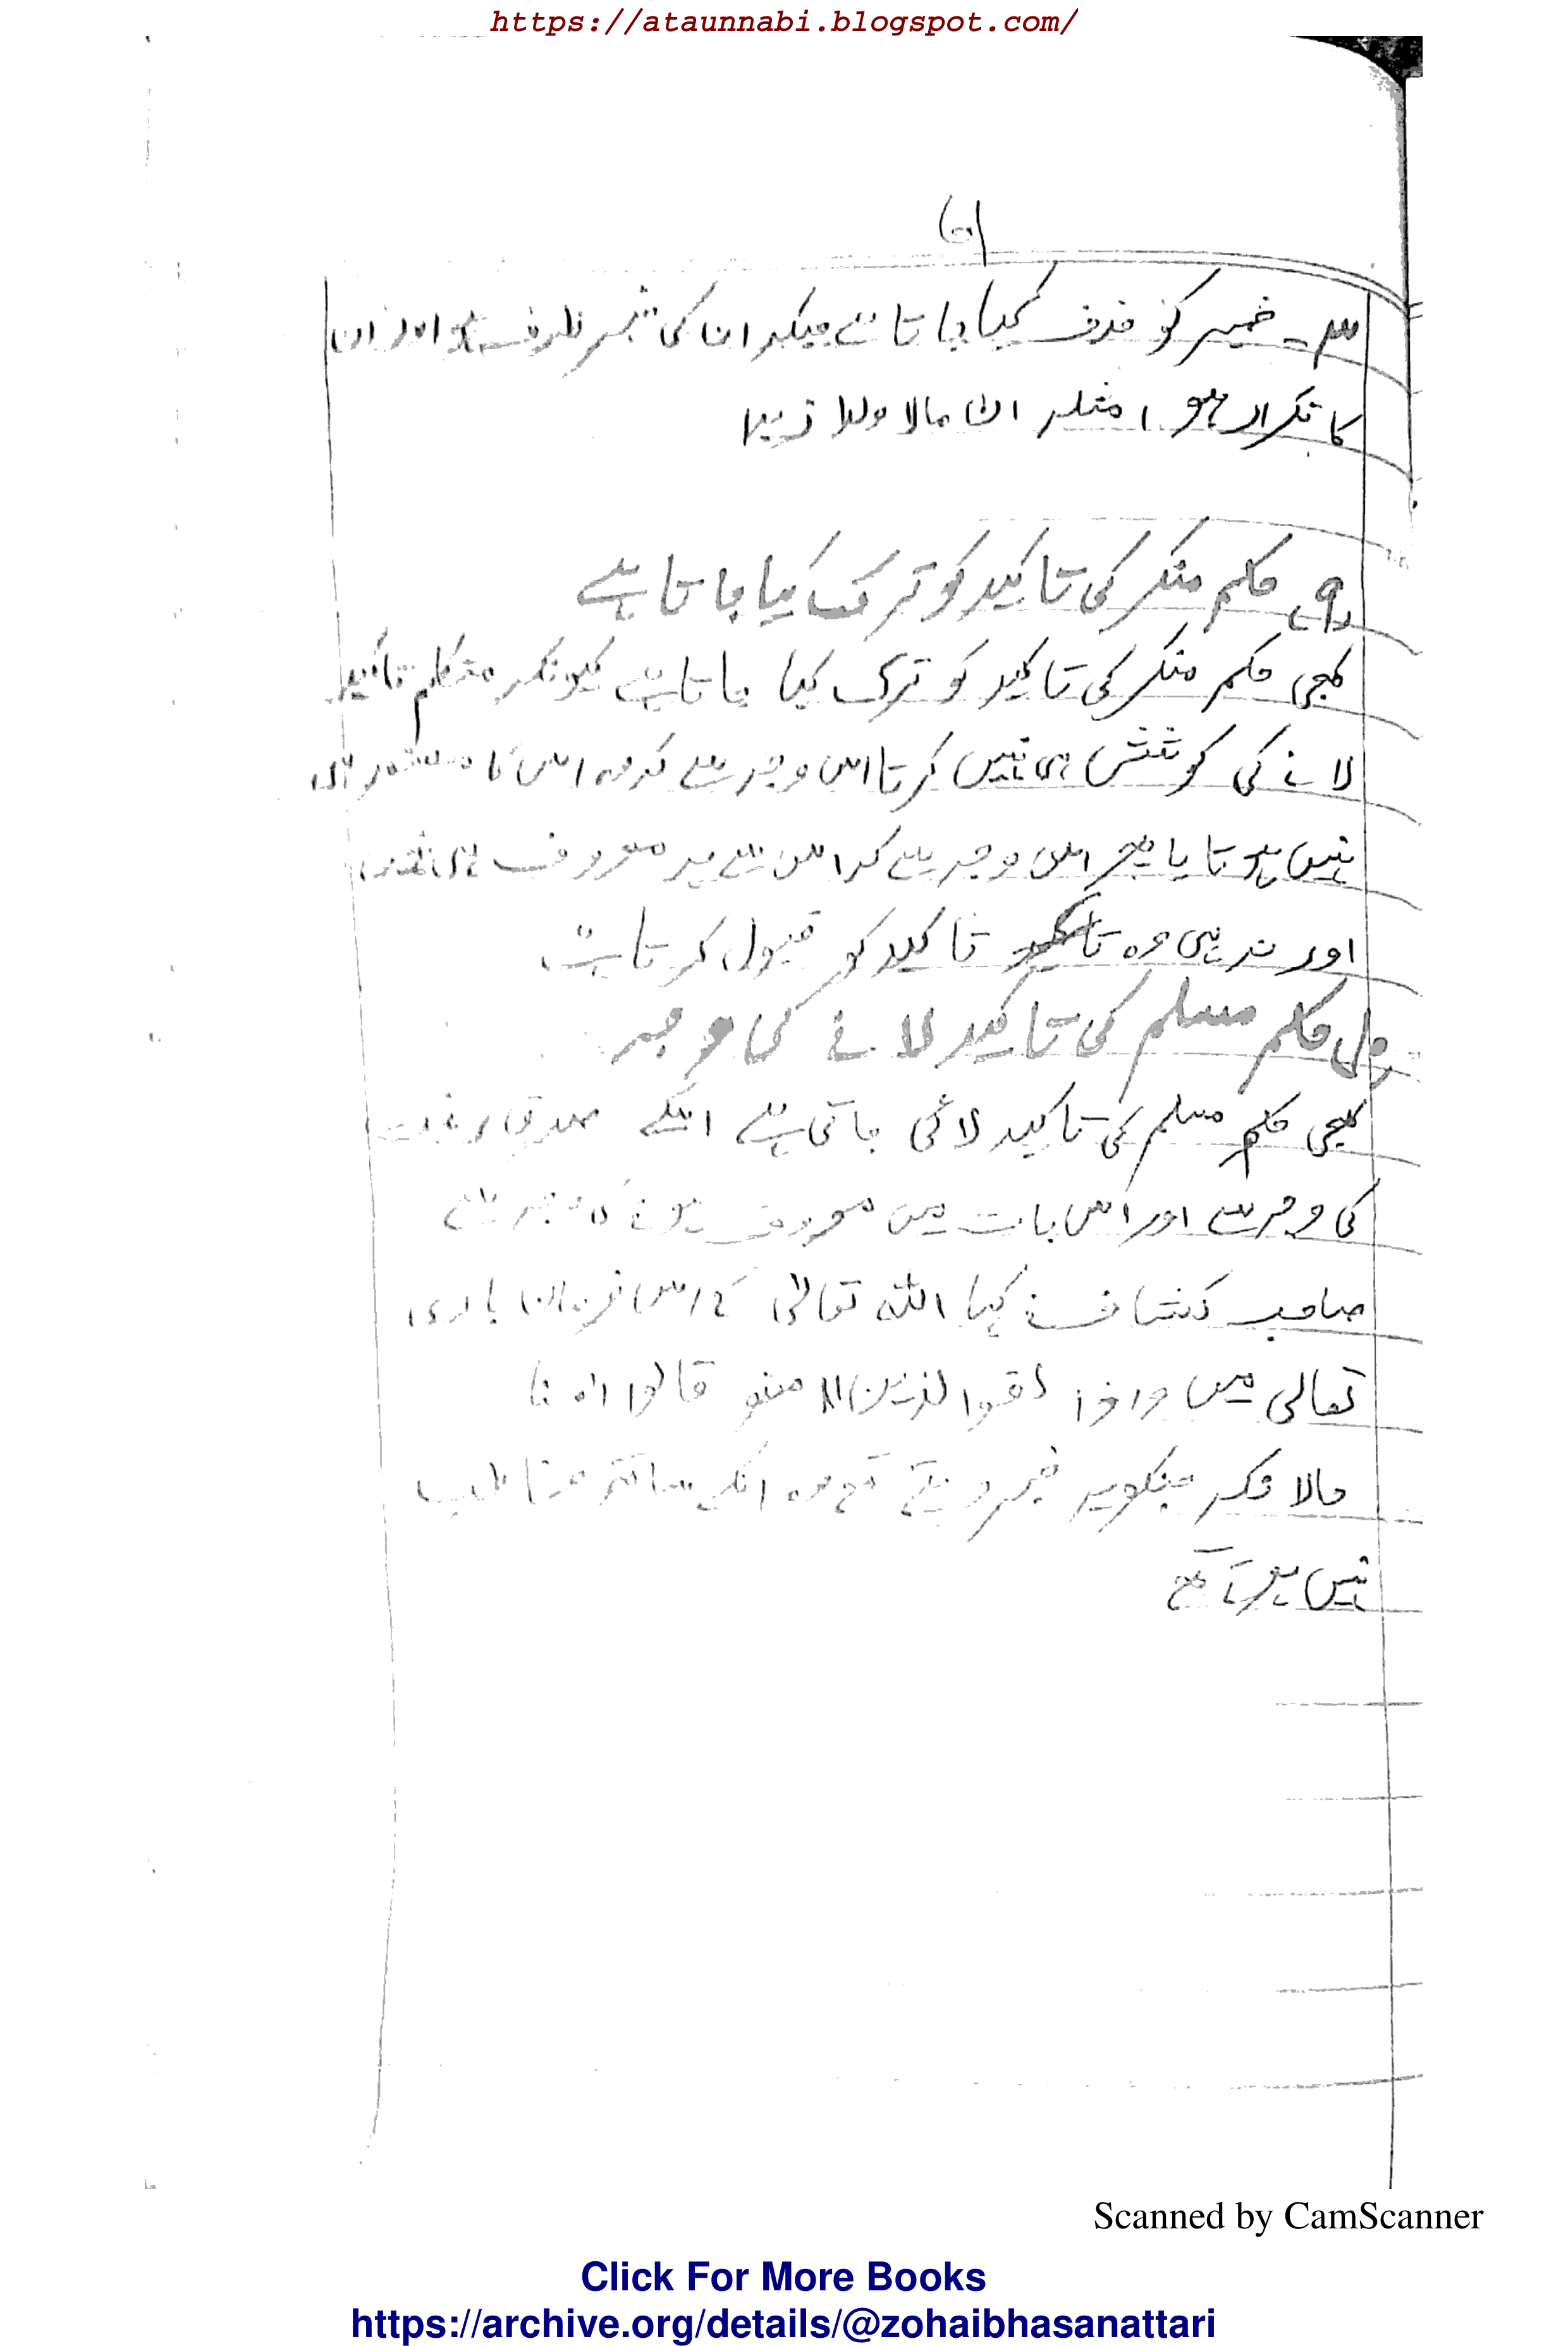 https://ataunnabi.blogspot.com/
۳۔ خبر کو حذف کیا جاتا ہے جبکہ ان کی خبر ظرف ہو اور ان
کا تکرار ہو، مثلہ ان مالا ولدا زیدا
حکم منکر کی تاکید کو ترک کیا جاتا ہے
کبھی حکم منکر کی تاکید کو ترک کیا جاتا ہے کیونکہ متکلم تاکید
لانے کی کوشش ہی نہیں کرتا اس وجہ سے کہ وہ اس کا
نہیں ہوتا یا پھر اس وجہ سے کہ اس سے یہ معروف
اور نہ ہی وہ تاکید کو قبول کرتا ہے
حکم مسلم کی تاکید لانے کی وجہ
کبھی حکم مسلم کی تاکید لائی جاتی ہے انکے
کی وجہ سے اور اس بات میں معروف ہونے کی وجہ سے
صاحب کشاف نے کہا اللہ تعالی کے اس فرمان باری
تعالی میں واذا لقوا الذین اٰمنو قالوا اٰمنا
حالانکہ جنکو یہ خبر دیتے تھے وہ انکے ساتھ مخاطب
نہیں ہوتے تھے
Scanned by CamScanner
Click For More Books
https://archive.org/details/@zohaibhasanattari